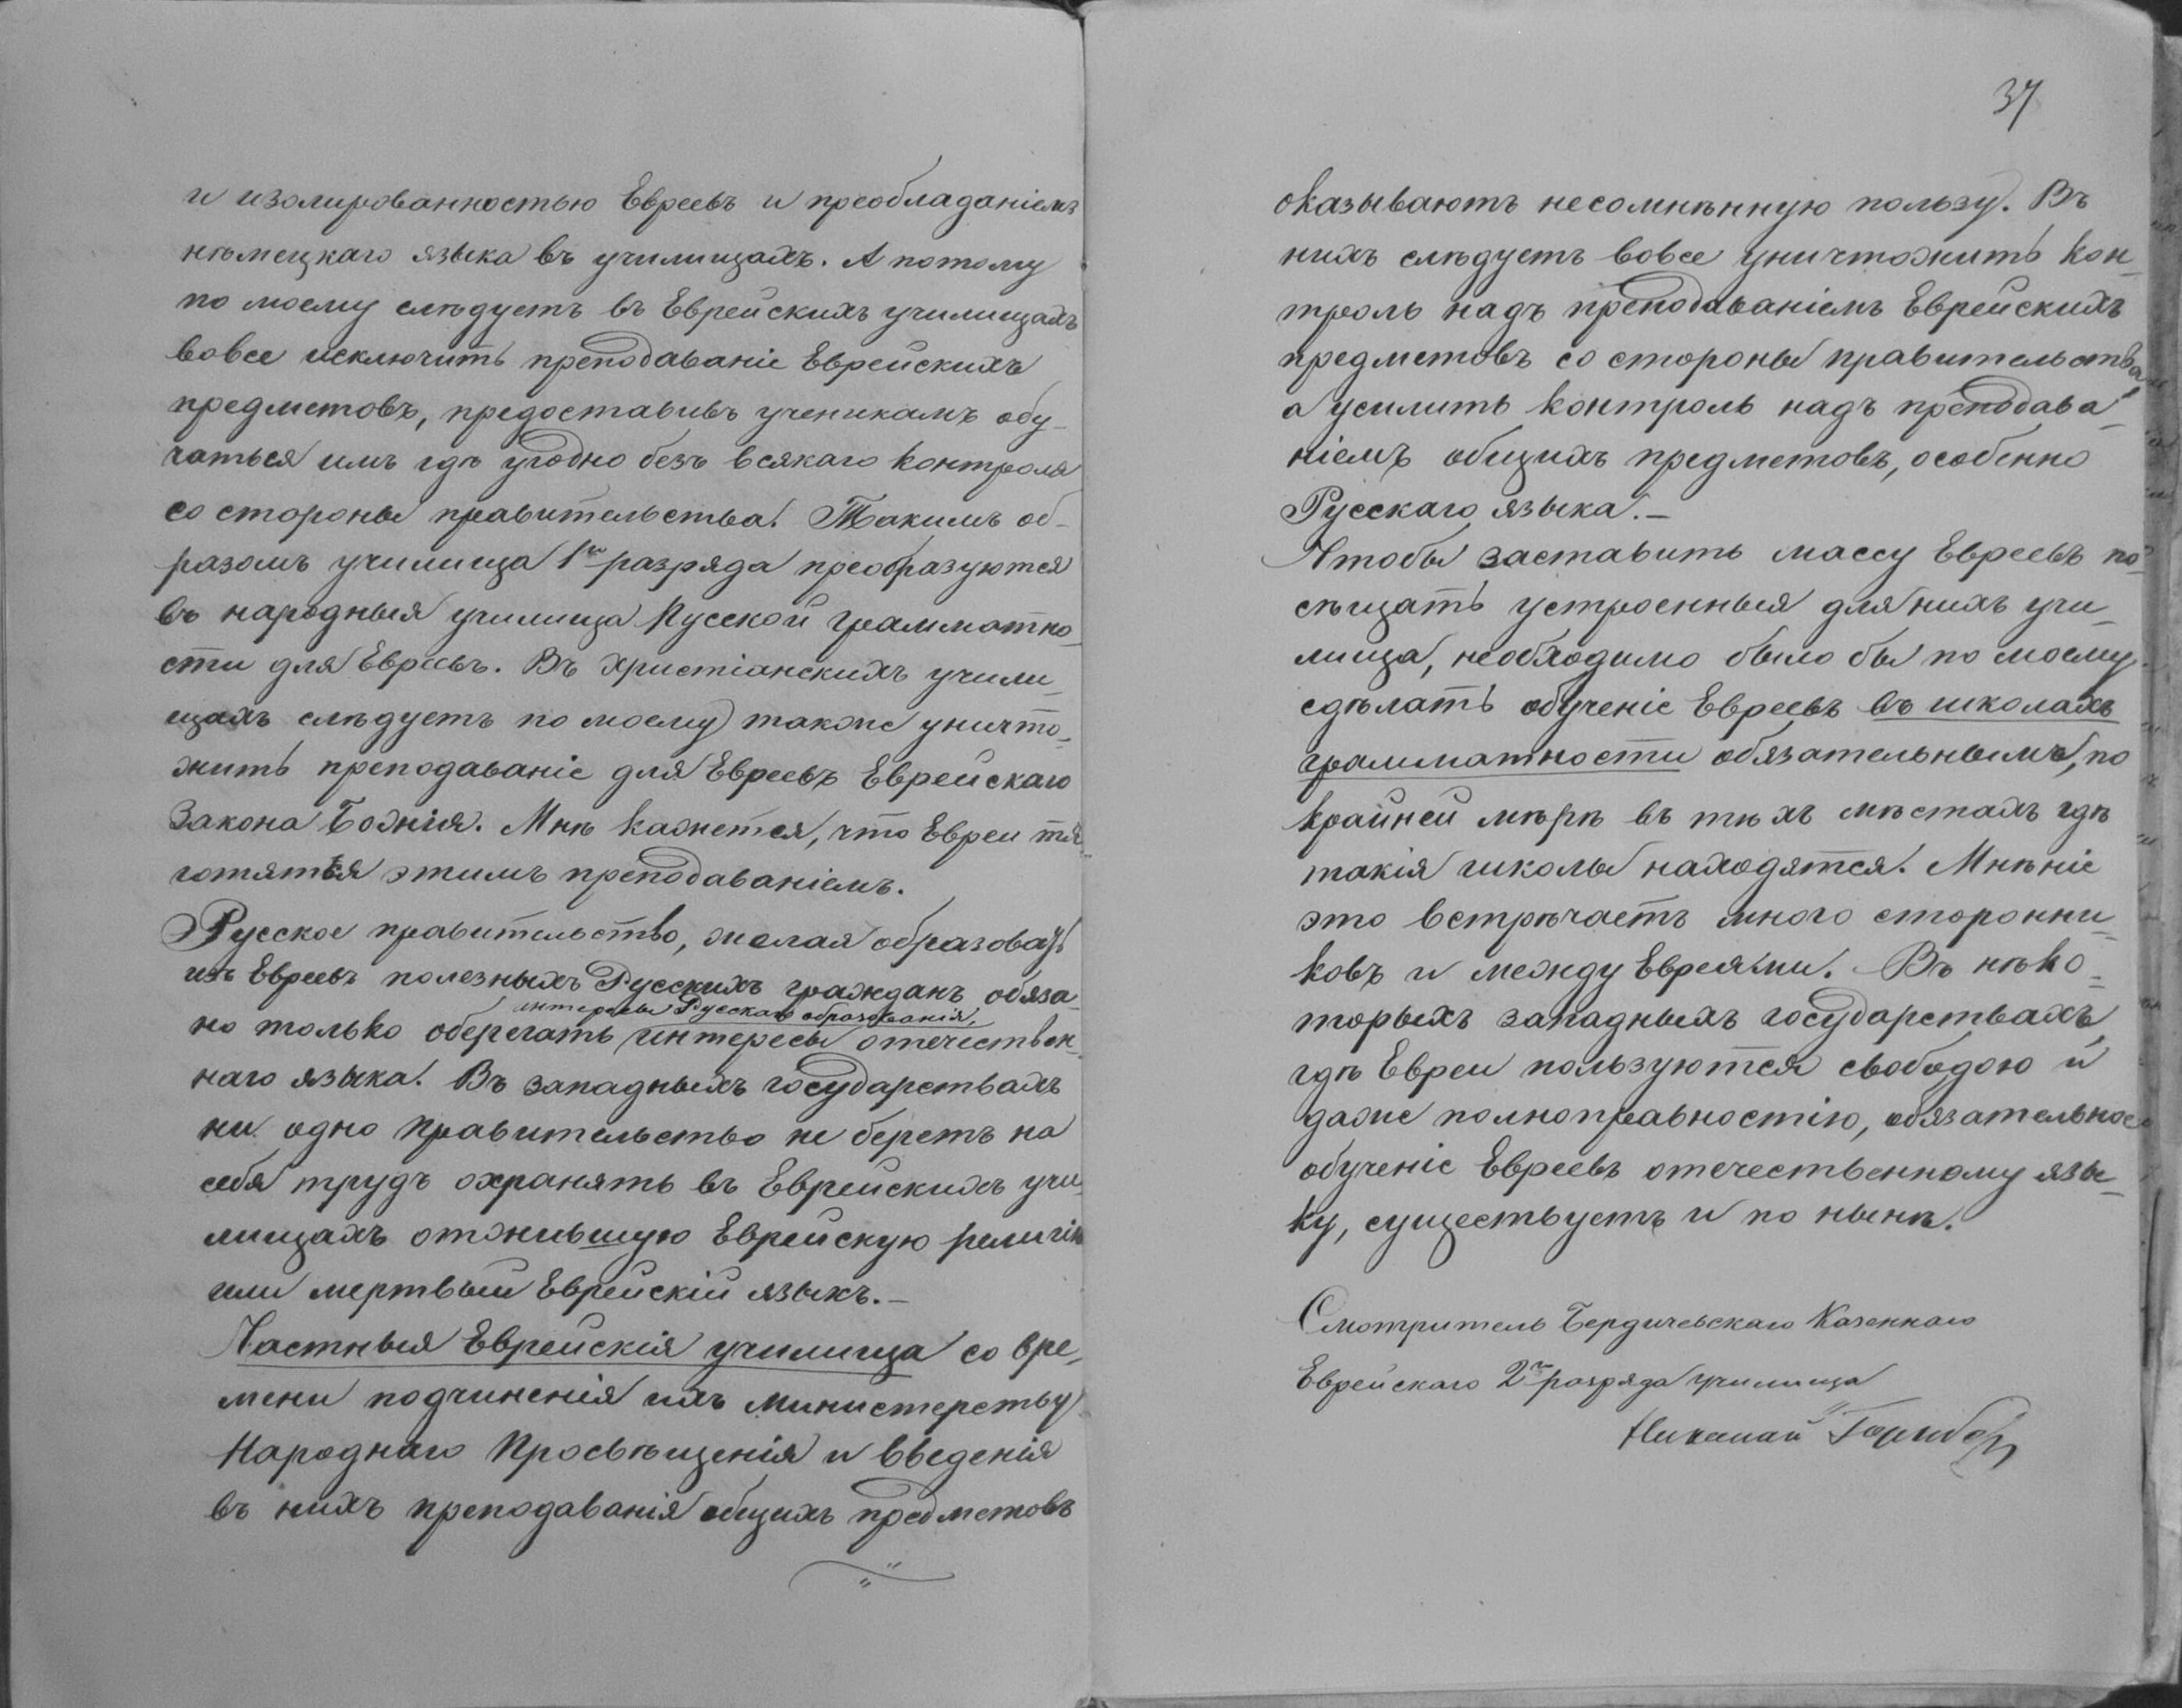 и изолированностью Евреевъ и преобладаніемъ
нѣмецкаго языка въ училищахъ. А потому
по моему слѣдуетъ въ Еврейскихъ училищахъ
вовсе исключить преподаваніе Еврейскихъ
предметовъ, предоставивъ ученикамъ обу-
чаться имъ гдѣ угодно безъ всякаго контроля
со стороны правительства. Такимъ об-
разомъ училища 1го разряда преобразуются
въ народныя училища Русской грамматно-
сти для Евреевъ. Въ христіанскихъ учили-
щахъ слѣдуетъ по моему также уничто-
жить преподаваніе для Евреевъ Еврейскаго
Закона Божія. Мнѣ кажется, что Евреи тя-
готятся этимъ преподаваніемъ.
Русское правительство, желая образовать
изъ Евреевъ полезныхъ Русскихъ гражданъ обяза-
интересы Русскаго образованія,
но только оберегать интересы отечествен-
наго языка. Въ западныхъ государствахъ
ни одно правительство не беретъ на
себя трудъ охранять въ Еврейскихъ учи-
лищахъ отжившую Еврейскую религію
или мертвый Еврейскій языкъ.—
Частныя Еврейскія училища со вре-
мени подчиненія ихъ Министерству
Народнаго Просвѣщенія и введенія
въ нихъ преподаванія общихъ предметовъ
37
оказываютъ несомнѣнную пользу. Въ
нихъ слѣдуетъ вовсе уничтожить кон-
троль надъ преподаваніемъ Еврейскихъ
предметовъ со стороны правительства,
а усилить контроль надъ преподава-
ніемъ общихъ предметовъ, особенно
Русскаго языка.—
Чтобы заставить массу Евреевъ по-
сѣщать устроенныя для нихъ учи-
лища, необходимо было бы по моему
сдѣлать обученіе Евреевъ въ школахъ
грамматности обязательнымъ, по
крайней мѣрѣ въ тѣхъ мѣстахъ гдѣ
такія школы находятся. Мнѣніе
это встрѣчаетъ много сторонни-
ковъ и между Евреями. Въ нѣко-
торыхъ западныхъ государствахъ,
гдѣ Евреи пользуются свободою и
даже полноправностію, обязательное
обученіе Евреевъ отечественному язы-
ку, существуетъ и по нынѣ.
Смотритель Бердичевскаго Казеннаго
Еврейскаго 2го разряда училища
Николай